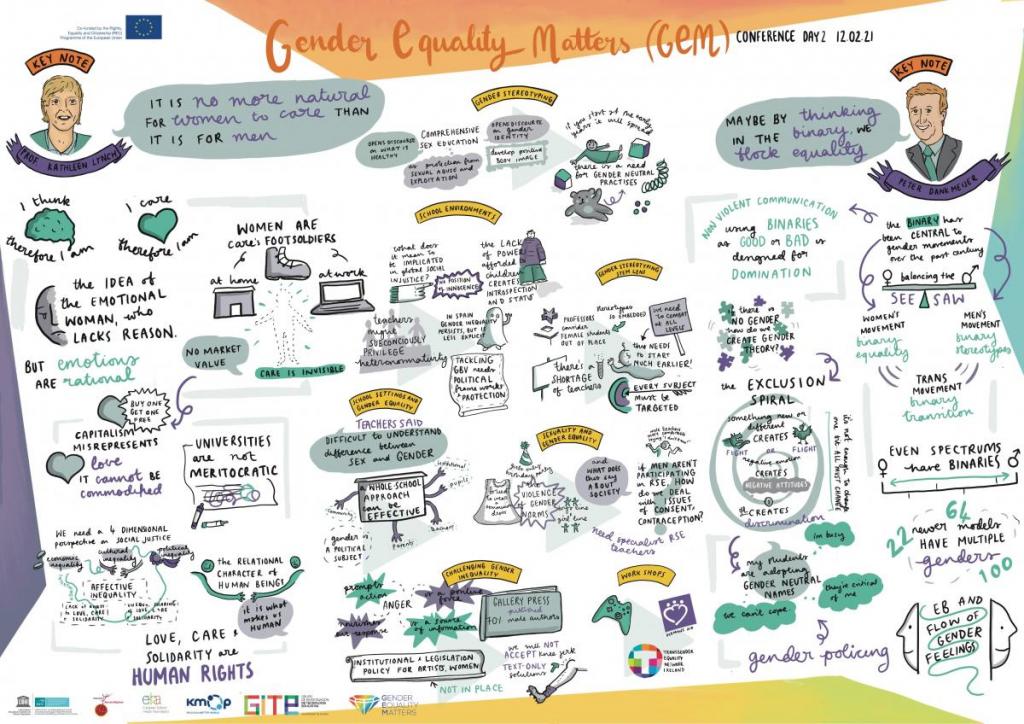 Co-funded by the Rights,
Equality and Citizenship (REC)
Programme of the European Union
Gender Equality Matters (GEM)
CONFERENCE DAY 2 12.02.21
KEY NOTE
PROF. KATHLEEN LYNCH
IT IS no more natural
FOR women to care THAN
IT IS FOR men
I think
therefore I am
I care
therefore I am
the IDEA of
the EMOTIONAL
WOMAN, who
LACKS REASON.
BUT emotions
ARE rational
WOMEN ARE
care's FOOTSOLDIERS
at home
at work
NO MARKET
VALUE
CARE IS INVISIBLE
BUY ONE
GET ONE
FREE
CAPITALISM
MISREPRESENTS
love
IT cannot BE
commodified
UNIVERSITIES
are not
MERITOCRATIC
WE NEED A 4 DIMENSIONAL
perspective on SOCIAL JUSTICE
economic
inequality
cultural
inequality
political
inequality
AFFECTIVE
INEQUALITY
the RELATIONAL
CHARACTER of
HUMAN BEINGS
it is what
makes us
HUMAN
LOVE, CARE &
SOLIDARITY are
HUMAN RIGHTS
GENDER STEREOTYPING
OPENS DISCOURSE
on WHAT IS
HEALTHY
COMPREHENSIVE
SEX EDUCATION
OPENS DISCOURSE
on gender
IDENTITY
as protection from
SEXUAL ABUSE and
EXPLOITATION
develop positive
BODY IMAGE
if you start at the early
years it will spread
there is a need
for GENDER NEUTRAL
PRACTISES
SCHOOL ENVIRONMENTS
what does
it mean to
be IMPLICATED
in global SOCIAL
INJUSTICE?
the POSITION
of INNOCENCE
the LACK
of POWER
afforded
children
CREATES
INTROSPECTION
AND STATUS
teachers
might
SUBCONCIOUSLY
PRIVILEGE
heteronormativity
IN SPAIN
GENDER INEQUALITY
PERSISTS, BUT IS
LESS EXPLICIT
TACKLING
GBV needs
POLITICAL
frameworks
PROTECTION
GENDER STEREOTYPING
STEM LENS
PROFESSORS
consider
FEMALE STUDENTS
OUT OF PLACE
stereotypes
SO EMBEDDED
we need
to COMBAT
at ALL
LEVELS
there's a
SHORTAGE
of teachers
THIS NEEDS
to START
MUCH EARLIER!
EVERY SUBJECT
must be
TARGETED
SCHOOL SETTINGS AND
GENDER EQUALITY
TEACHERS SAID
DIFFICULT TO UNDERSTAND
difference between
SEX and GENDER
A WHOLE-SCHOOL
APPROACH
can be
EFFECTIVE
community
institutional
pupils
teachers
parents
gender is
A POLITICAL
SUBJECT
SEXUALITY AND
GENDER EQUALITY
VIOLENCE
of GENDER
NORMS
and
WHAT DOES
that say
ABOUT
SOCIETY
boys line
girl line
IF MEN ARENT
PARTICIPATING
in RSE, HOW
do we DEAL
with ISSUES
of CONSENT,
CONTRACEPTION?
need specialist RSE
teachers
CHALLENGING GENDER
INEQUALITY
prompts
action
ANGER
is a positive
force
our response
is a source
of information
GALLERY PRESS
published
701 male authors
INSTITUTIONAL & LEGISLATION
POLICY FOR ARTISTS, WOMEN
NOT IN PLACE
we will NOT
ACCEPT knee jerk
TEXT-ONLY
solutions
WORK SHOPS
TRANSGENDER
EQUALITY
NETWORK
IRELAND
KEY NOTE
PETER DANKMEIJER
MAYBE BY thinking
IN THE binary, WE
block equality
NON VIOLENT COMMUNICATION
using BINARIES
as GOOD or BAD is
designed for
DOMINATION
the BINARY has
been CENTRAL to
gender movements
over the past century
balancing the
SEE SAW
WOMEN'S
MOVEMENT
binary
equality
MEN'S
MOVEMENT
binary
stereotypes
TRANS
MOVEMENT
binary
transition
if there is
NO GENDER
how do we
CREATE GENDER
THEORY?
the EXCLUSION
SPIRAL
something new or
different
CREATES
FLIGHT
or
FIGHT
negative emotion
CREATES
NEGATIVE ATTITUDES
CREATES
discrimination
it's not enough to change
one bit ALL MUST CHANGE
EVEN SPECTRUMS
have BINARIES
22
64
newer models
HAVE MULTIPLE
genders
100
my students
are adopting
GENDER NEUTRAL
NAMES
i'm busy
they're critical
of me
we can't cope
gender policing
EB AND
FLOW OF
GENDER
FEELINGS
kmop
GITE
GENDER
EQUALITY
MATTERS